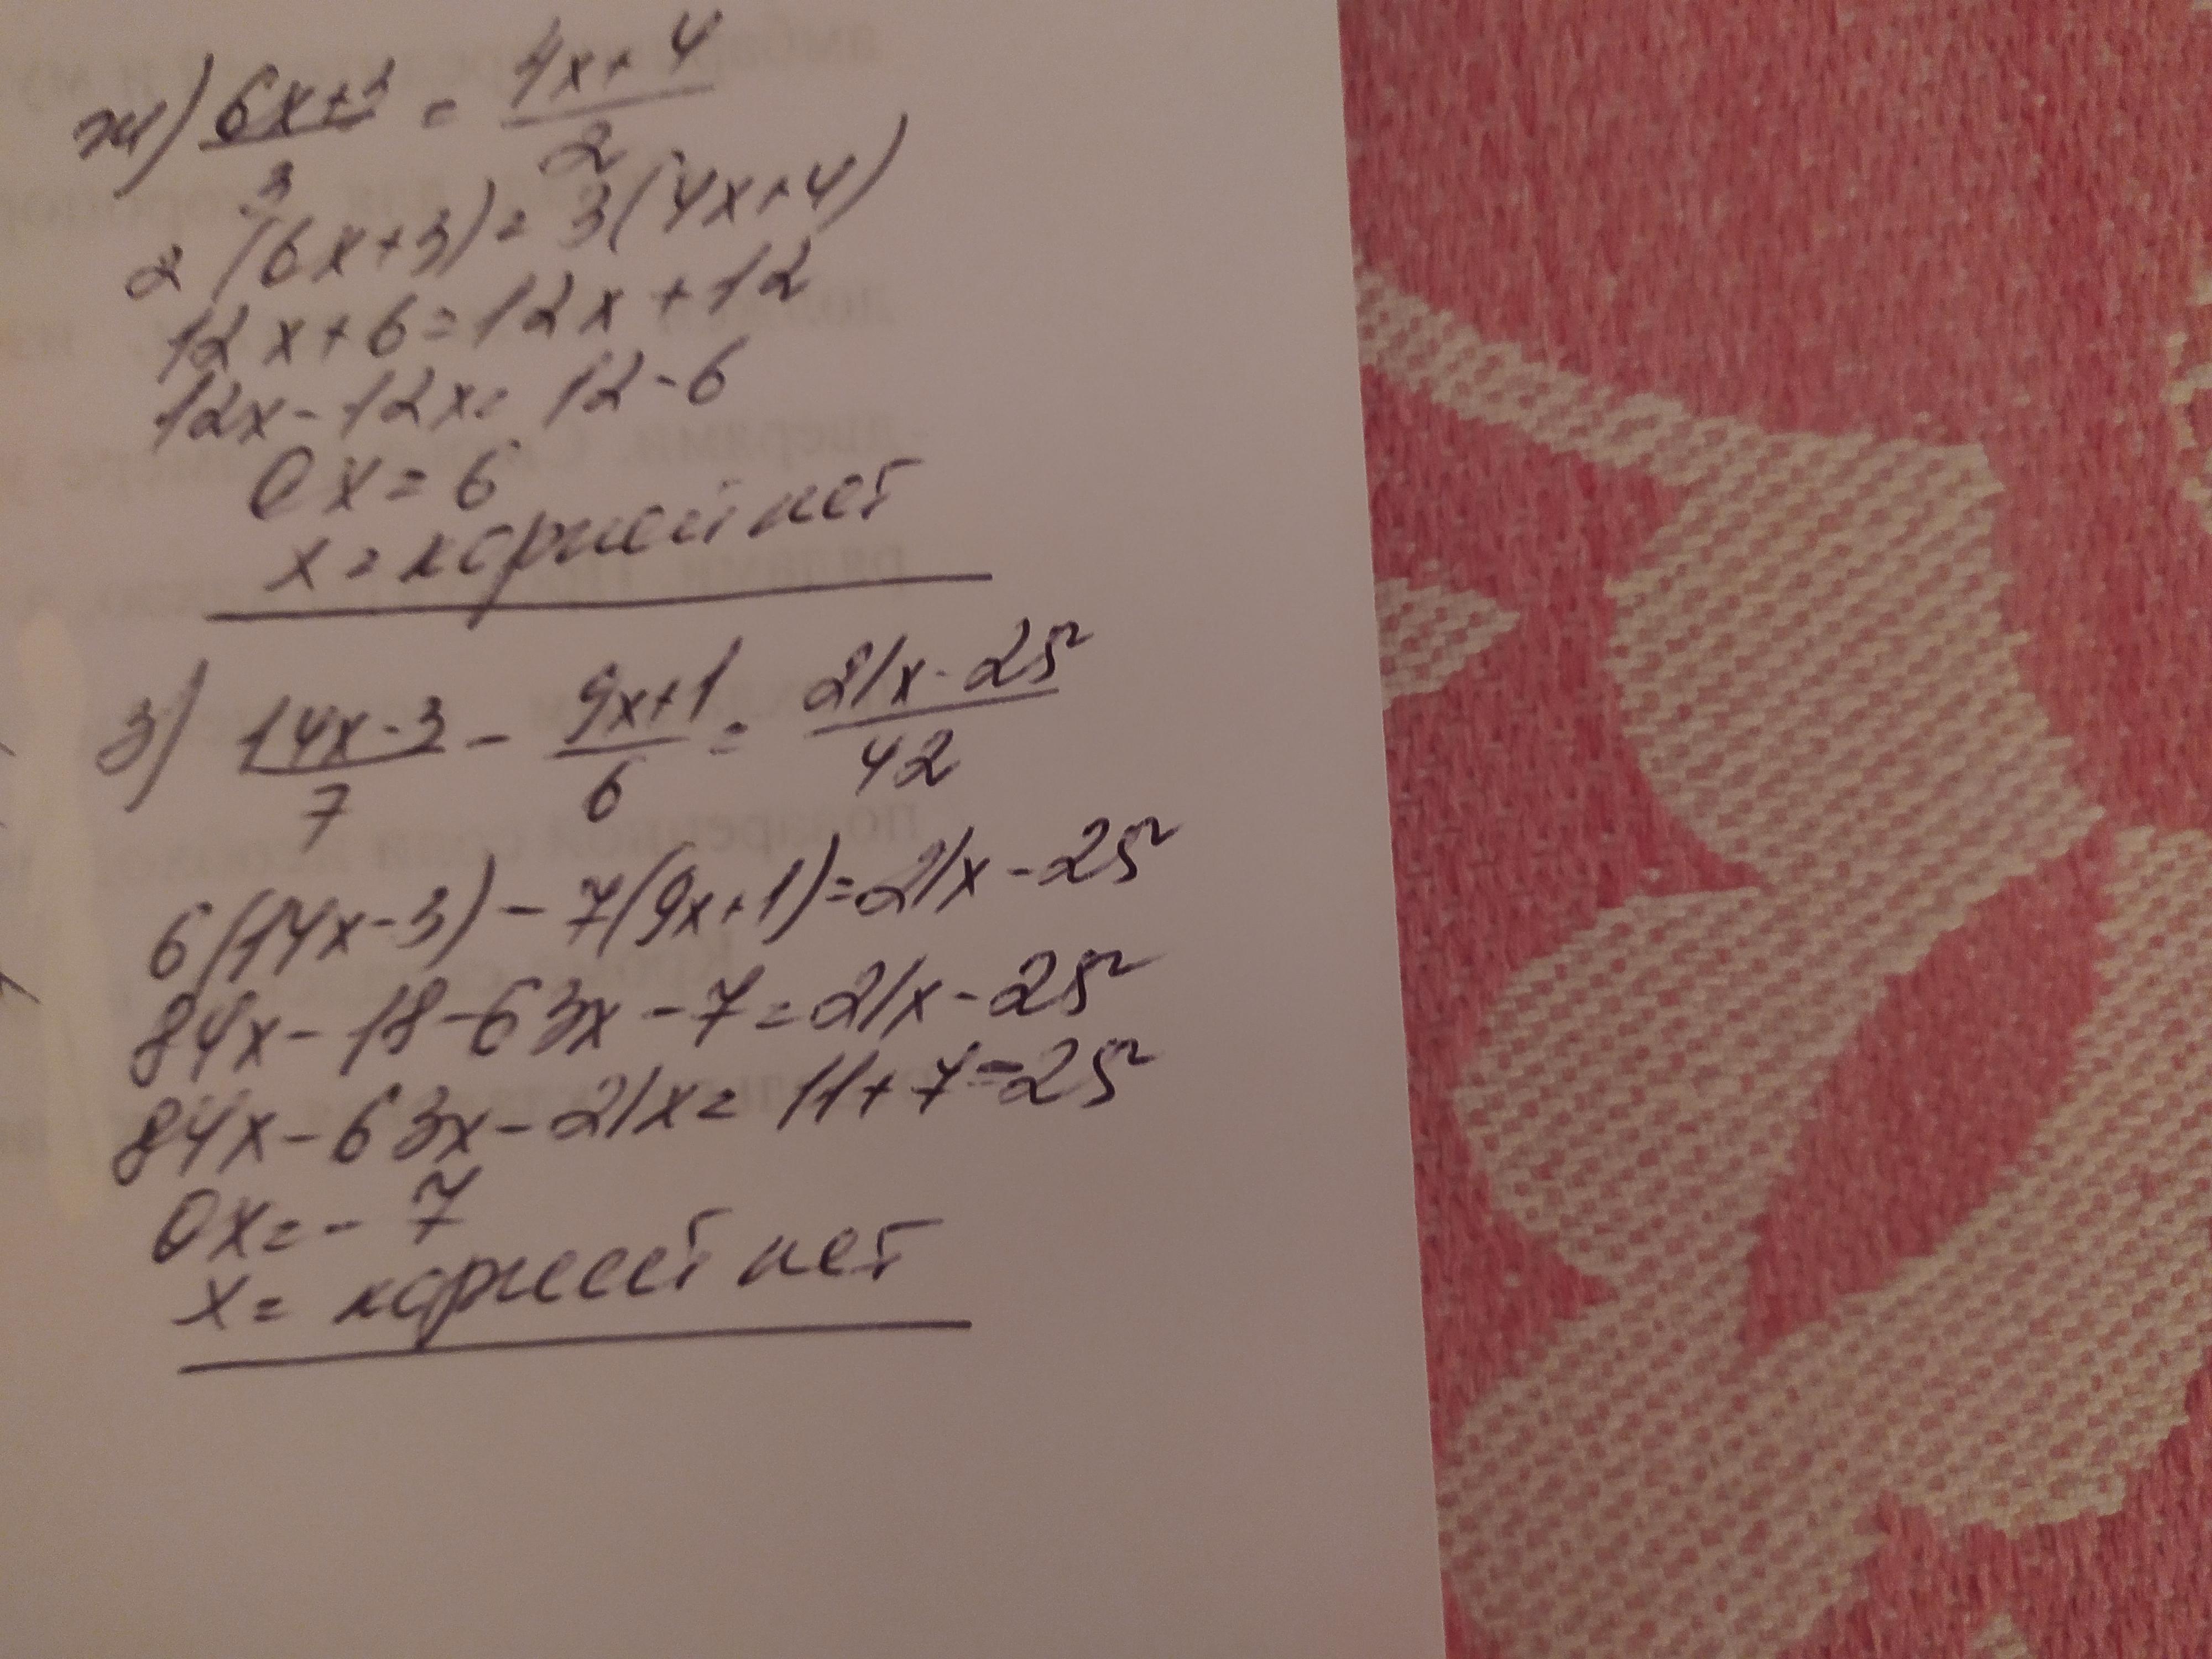 ж) 6x+3/3 = 4x+4/2
2(6x+3) = 3(4x+4)
12x+6=12x+12
12x-12x= 12-6
0x=6
x= корней нет
з) 14x-3/7 - 9x+1/6 = 21x-25/42
6(14x-3) - 7(9x+1)=21x-25
84x-18-63x-7=21x-25
84x-63x-21x= 11+7-25
0x=-7
x= корней нет